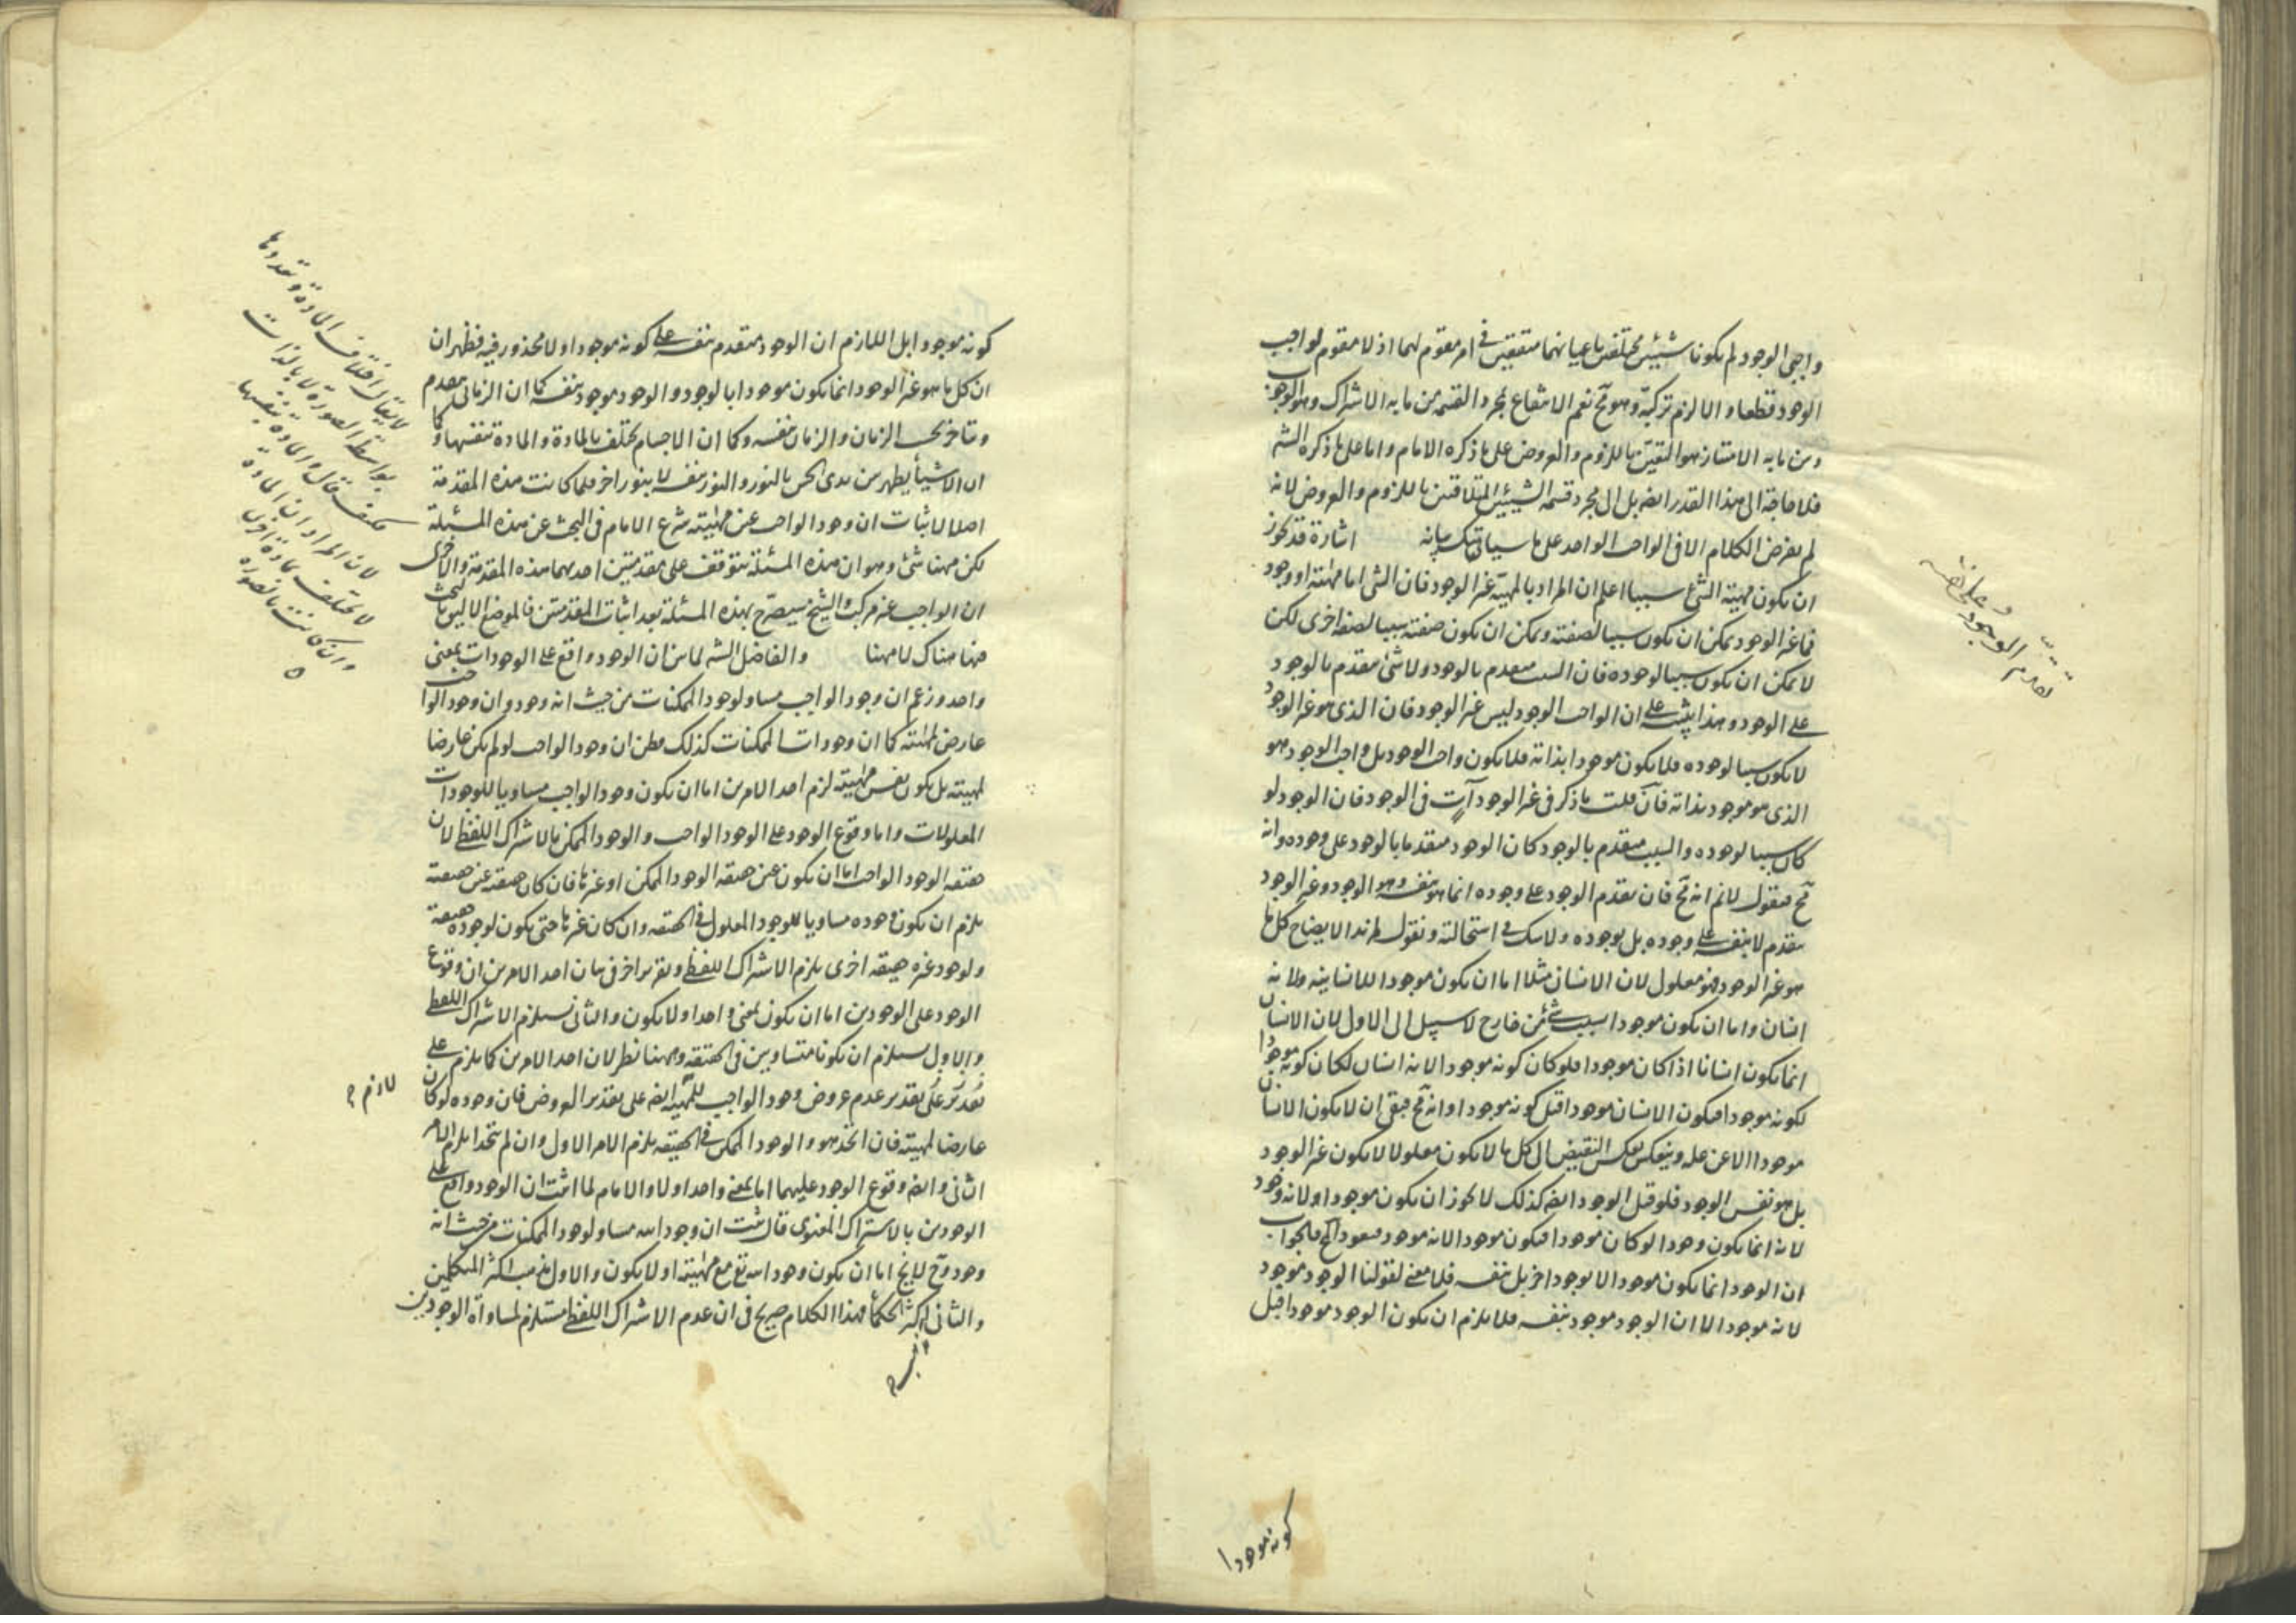 واجبى الوجود لم يكونا شيئين مختلفين باعيانهما متفقين فى امر مقوم لهما اذ لا مقوم لواجب
الوجود قطعا والا لزم تركبه وهو مح نعم الانتفاع بمجرد القسمة من ما به الاشتراك وهو الوجود
ومن ما به الامتياز هو التعين باللزوم والعروض على ما ذكره الامام واما على ما ذكره الشه
فلا حاجة الى هذا القدر ايضه بل الى مجرد قسمة الشيئين المتلاقيين باللزوم والعروض لانه
لم يفرض الكلام الا فى الواجب الواحد على ما سياتيك بيانه اشارة قد يجوز
ان يكون مهية الشئ سببا اعلم ان المراد بالمهية غير الوجود فان الشئ اما مهيته او وجود
فما غير الوجود يمكن ان يكون سببا لصفته ويمكن ان يكون صفته سببا لصفة اخرى لكن
لا يمكن ان يكون سببا لوجوده فان السبب متقدم بالوجود ولا شئ متقدم بالوجود
على الوجود وهذا ينبه على ان الواجب الوجود ليس غير الوجود فان الذى هو غير الوجود
لا يكون سببا لوجوده فلا يكون موجودا بذاته فلا يكون واجب الوجود بل واجب الوجود هو
الذى هو موجود بذاته فان قلت ما ذكر فى غير الوجود آت فى الوجود فان الوجود لو
كان سببا لوجوده والسبب متقدم بالوجود كان الوجود متقدما بالوجود على وجوده وانه
مح فنقول لا نم انه مح فان تقدم الوجود على وجوده انما هو بنفسه وهو الوجود وغير الوجود
متقدم لا بنفسه على وجوده بل بوجوده ولا شك فى استحالته ونقول لمزيد الايضاح كل ما
هو غير الوجود فهو معلول لان الانسان مثلا اما ان يكون موجودا للانسانيه ولانه
انسان واما ان يكون موجودا بسبب شئ من خارج لا سبيل الى الاول لان الانسان
انما يكون انسانا اذا كان موجودا فلو كان كونه موجودا لانه انسان لكان كونه موجودا
لكونه موجودا فيكون الانسان موجودا قبل كونه موجودا وانه مح فبقى ان لا يكون الانسان
موجودا الا عن علة وينعكس بعكس النقيض الى كل ما لا يكون معلولا لا يكون غير الوجود
بل هو نفس الوجود فلو قيل الوجود ايضه كذلك لا يجوز ان يكون موجودا ولانه وجود
لانه انما يكون وجودا لو كان موجودا فيكون موجودا لانه موجود فيعود المح فالجواب
ان الوجود انما يكون موجودا لا بوجود اخر بل بنفسه فلا معنى لقولنا الوجود موجود
لانه موجود الا ان الوجود موجود بنفسه فلا يلزم ان يكون الوجود موجودا قبل
تقدم الوجود
وعلى نفسه
كونه موجودا
كونه موجودا بل اللازم ان الوجود متقدم بنفسه على كونه موجودا ولا محذور فيه فظهر ان
ان كل ما هو غير الوجود انما يكون موجودا بالوجود والوجود موجود بنفسه كما ان الزمانى متقدم
ومتاخر بحسب الزمان والزمان بنفسه وكما ان الاجسام يختلف بالمادة والمادة بنفسها وكما
ان الاشياء يظهر من يدى الحس بالنور والنور بنفسه لا بنور اخر فلما كانت هذه المقدمة
اصلا لاثبات ان وجود الواجب عين مهيته شرع الامام فى البحث عن هذه المسئلة
لكن ههنا شئ وهو ان هذه المسئلة يتوقف على مقدمتين احديهما هذه المقدمة والاخرى
ان الواجب غير مركب والشيخ سيصرح بهذه المسئلة بعد اثبات المقدمتين فالموضع الاليق بالبحث
عنها هناك لا ههنا والفاضل الشه لما بين ان الوجود واقع على الوجودات بمعنى
واحد وزعم ان وجود الواجب مساو لوجود الممكنات من حيث انه وجود وان وجود الواجب
عارض لمهيته كما ان وجودات الممكنات كذلك فظن ان وجود الواجب لو لم يكن عارضا
لمهيته بل يكون نفس مهيته لزم احد الامرين اما ان يكون وجود الواجب مساويا للوجودات
المعلولات واما وقوع الوجود على الوجود الواجب والوجود الممكن بالاشتراك اللفظى لان
حقيقة الوجود الواجب اما ان يكون عين حقيقة الوجود الممكن او غيرها فان كان حقيقته عين حقيقة
يلزم ان يكون وجوده مساويا للوجود المعلول فى الحقيقة وان كان غيرها حتى يكون لوجوده حقيقة
ولوجود غيره حقيقة اخرى يلزم الاشتراك اللفظى وتقرير اخر فى بيان احد الامرين ان وقوع
الوجود على الوجودين اما ان يكون بمعنى واحد او لا يكون والثانى يستلزم الاشتراك اللفظى
والاول يستلزم ان يكونا متساويين فى الحقيقة وههنا نظر لان احد الامرين كما يلزم على
تقدير على تقدير عدم عروض وجود الواجب للمهية ايضه على تقدير العروض فان وجوده لو كان
عارضا لمهيته فان اتحد هو والوجود الممكن فى الحقيقة يلزم الامر الاول وان لم يتحدا يلزم الامر
الثانى وايضه وقوع الوجود عليهما اما بمعنى واحد او لا والامام لما اثبت ان الوجود واقع على
الوجودين بالاشتراك المعنوى قال ثبت ان وجود الله مساو لوجود الممكنات من حيث انه
وجود وح لا يخ اما ان يكون وجود الله تع مع مهيته او لا يكون والاول مذهب اكثر المتكلمين
والثانى اكثر الحكماء فهذا الكلام صريح فى ان عدم الاشتراك اللفظى مستلزم لمساواة الوجودين
لا يقال اختلاف المادة وتعددها
بواسطة الصورة لا بالذات
فكيف قال والمادة بنفسها
لان المراد ان المادة
لا يختلف بمادة اخرى
وان كانت بالصورة
لازم